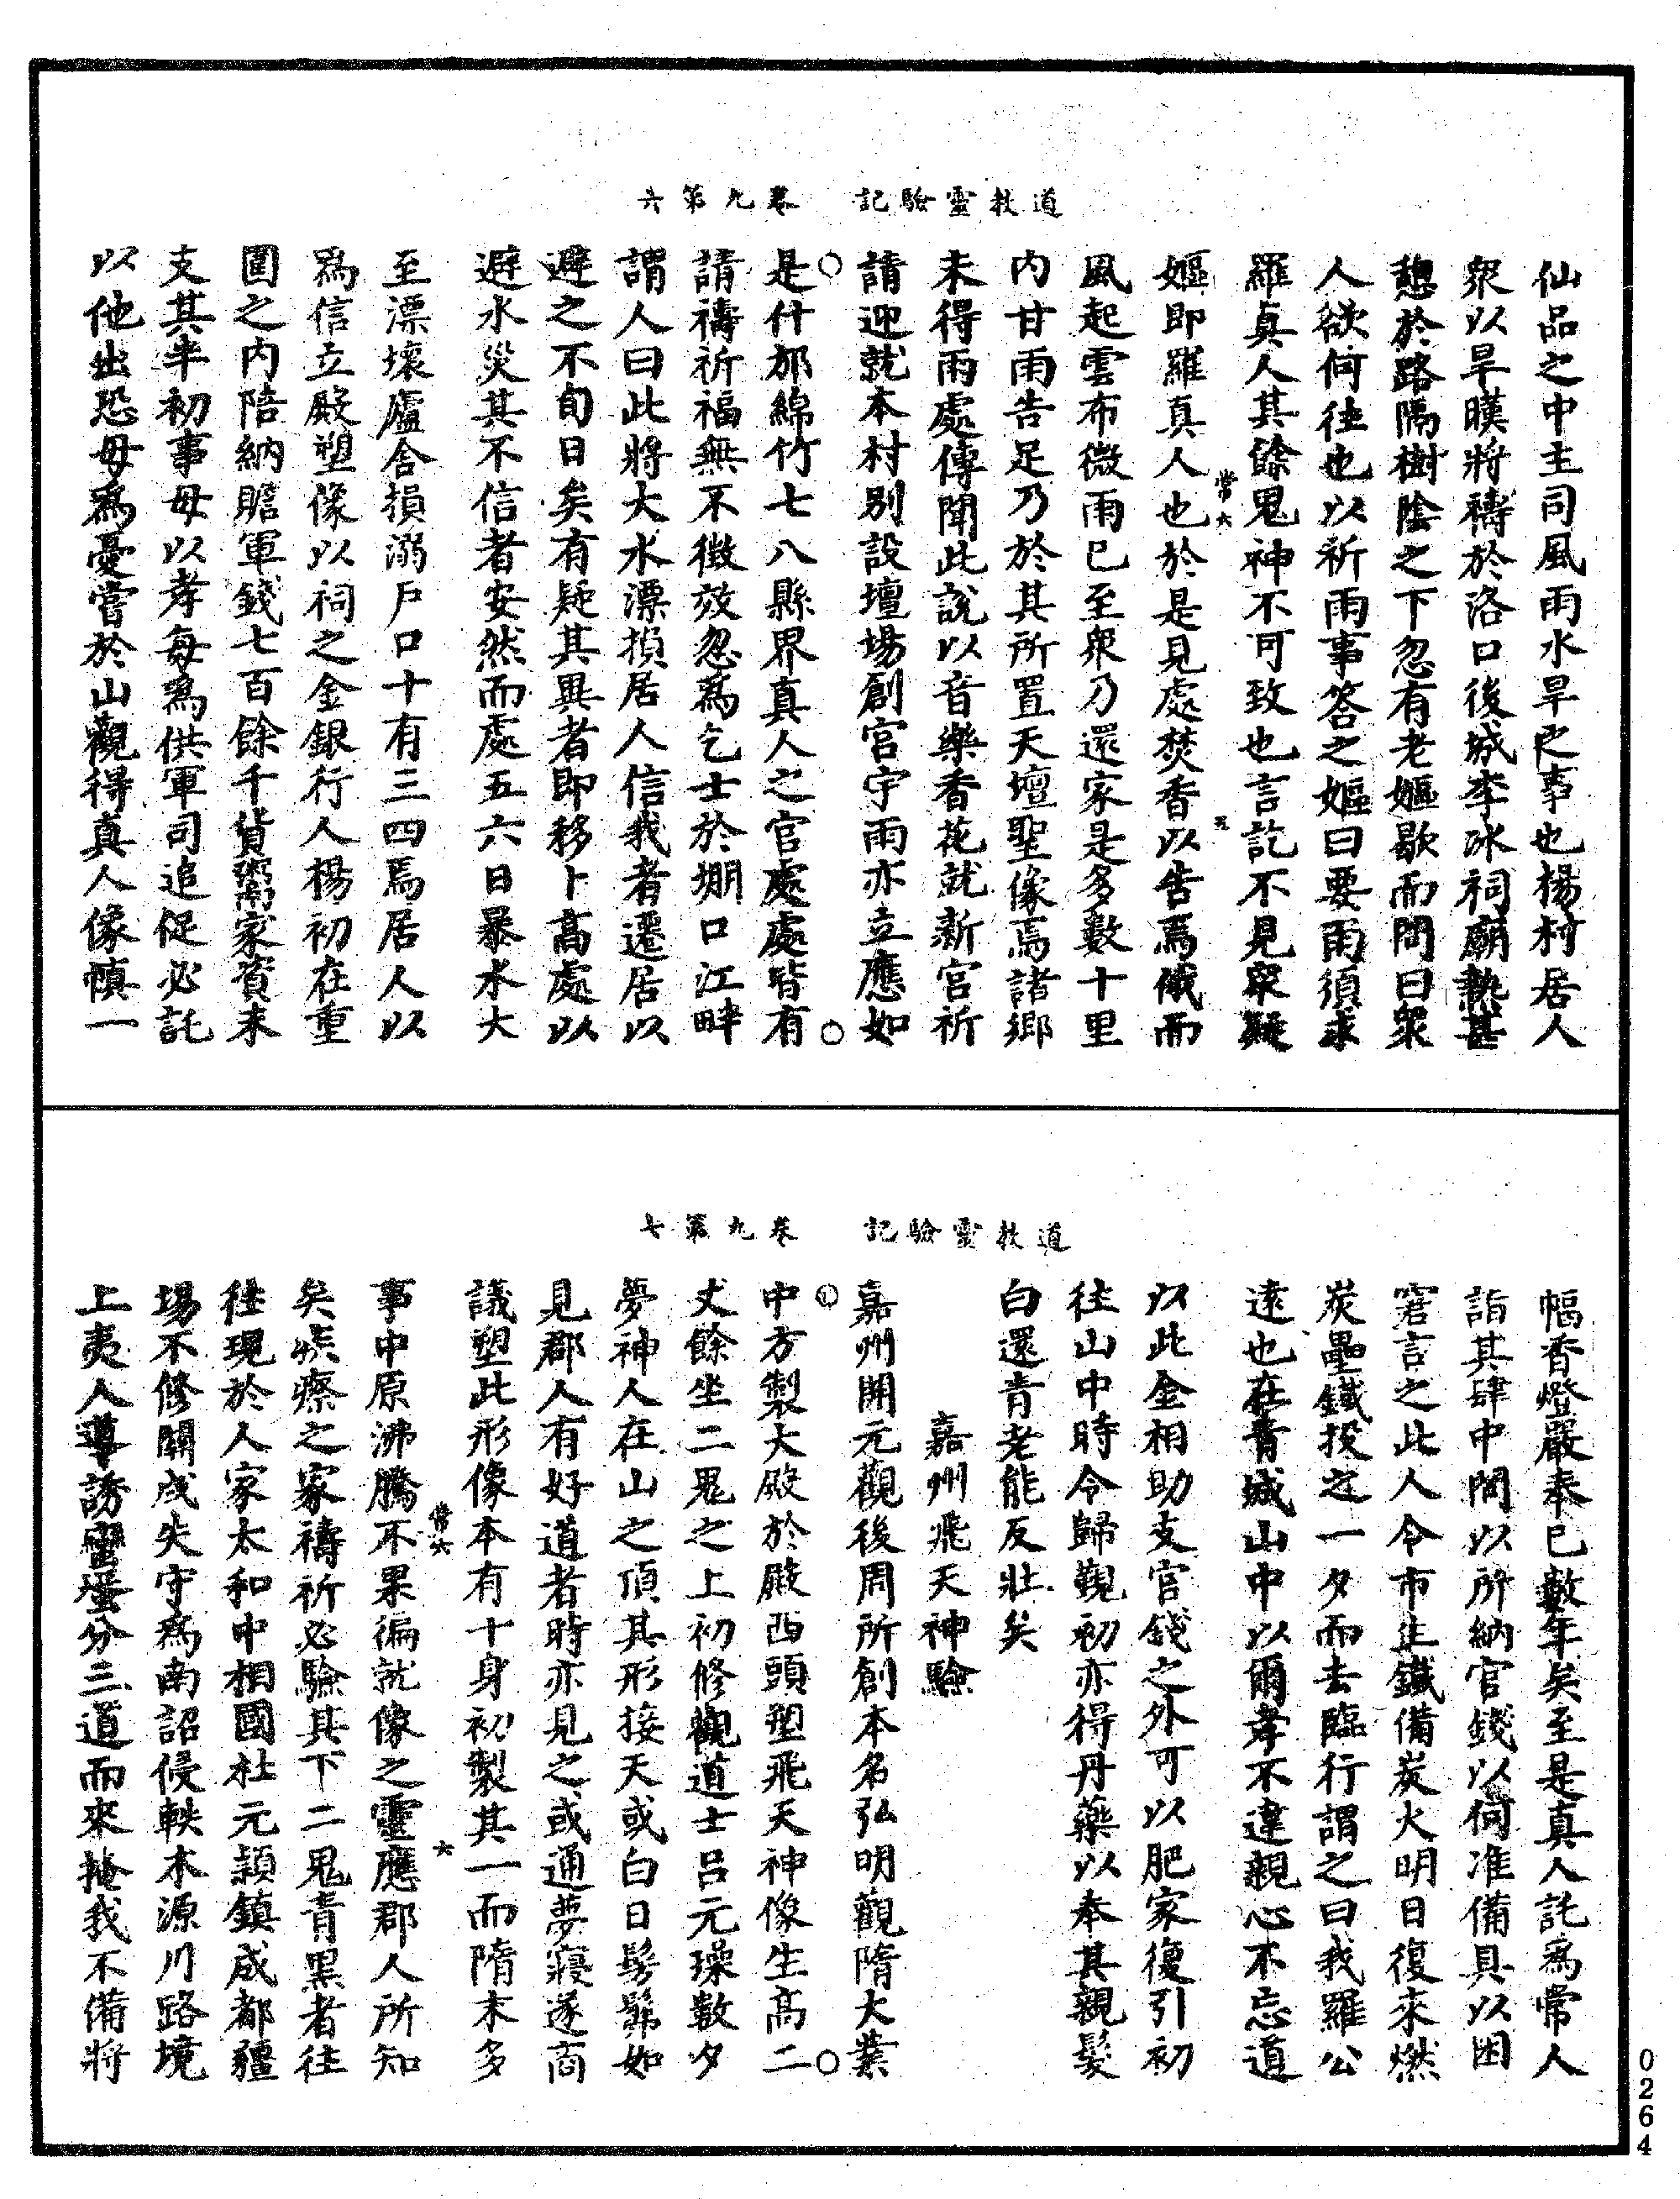 道教靈驗記　卷九第六
仙品之中主司風雨水旱之事也楊村居人
眾以旱暵將禱於洛口後城李冰祠廟熱甚
憩於路隅樹陰之下忽有老嫗歇而問曰眾
人欲何往也以祈雨事答之嫗曰要雨須求
羅真人其餘鬼神不可致也言訖不見眾疑
常六　五
嫗即羅真人也於是見處焚香以告焉俄而
風起雲布微雨已至眾乃還家是多數十里
內甘雨告足乃於其所置天壇聖像焉諸鄉
未得雨處傳聞此說以音樂香花就新宮祈
請迎就本村別設壇場創宮宇雨亦立應如
是什邡綿竹七八縣界真人之官處處皆有
請禱祈福無不徵效忽為乞士於堋口江畔
謂人曰此將大水漂損居人信我者遷居以
避之不旬日矣有疑其異者即移卜高處以
避水災其不信者安然而處五六日暴水大
至漂壞廬舍損溺戶口十有三四焉居人以
為信立殿塑像以祠之金銀行人楊初在重
圍之內陪納贍軍錢七百餘千貨鬻家資未
支其半初事母以孝每為供軍司追促必託
以他出恐母為憂嘗於山觀得真人像幀一
道教靈驗記　卷九第七
幅香燈嚴奉已數年矣至是真人託為常人
詣其肆中問以所納官錢以何准備具以困
窘言之此人令市生鐵備炭火明日復來燃
炭壘鐵投之一夕而去臨行謂之曰我羅公
遠也在青城山中以爾孝不違親心不忘道
以此金相助支官錢之外可以肥家復引初
往山中時令歸覲初亦得丹藥以奉其親髮
白還青老能反壯矣
嘉州飛天神驗
嘉州開元觀後周所創本名弘明觀隋大業
中方製大殿於殿西頭塑飛天神像坐高二
丈餘坐二鬼之上初修觀道士呂元璪數夕
夢神人在山之頂其形接天或白日髣髴如
見郡人有好道者時亦見之或通夢寐遂商
議塑此形像本有十身初製其一而隋末多
常六　六
事中原沸騰不果徧就像之靈應郡人所知
矣疾瘵之家禱祈必驗其下二鬼青黑者往
往現於人家太和中相國杜元穎鎮成都疆
場不修關戍失守為南詔侵軼木源川路境
上夷人導誘蠻蜑分三道而來掩我不備將
0264